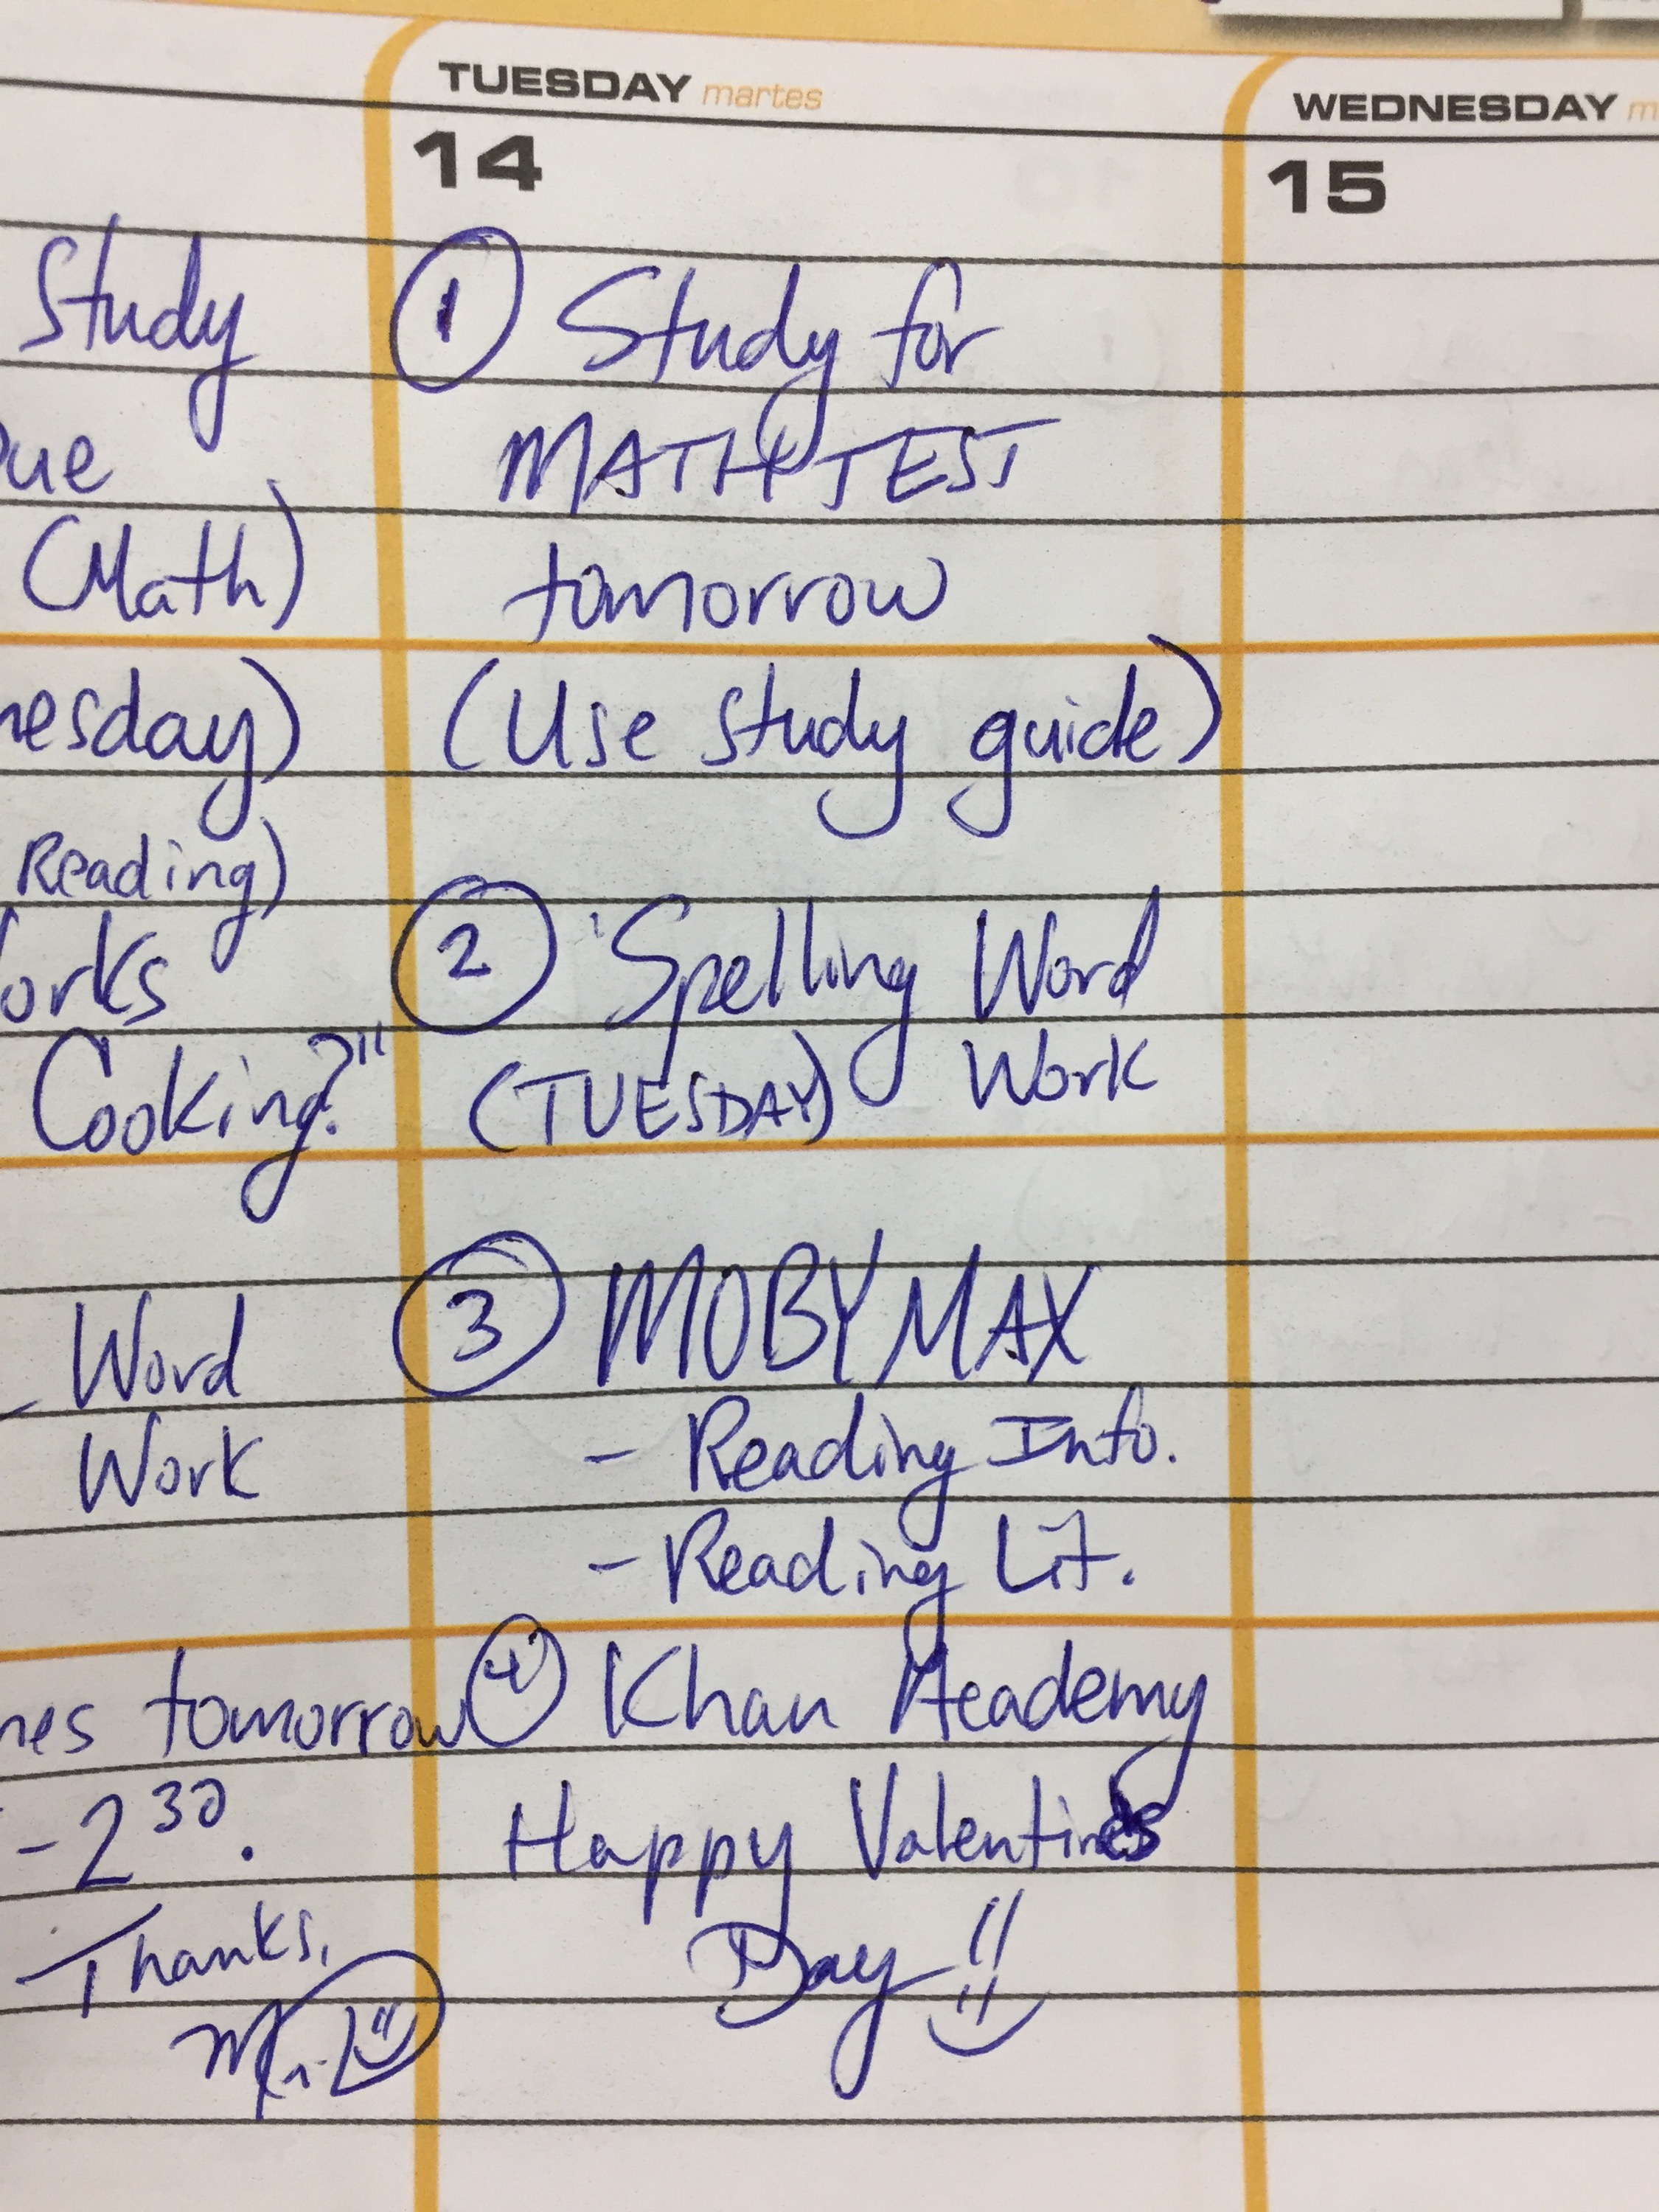 TUESDAY martes
14
① Study for
MATH TEST
tomorrow
(Use study guide)
② Spelling Word
Work
(TUESDAY)
③ MOBYMAX
- Reading Info.
- Reading Lit.
④ Khan Academy
Happy Valentines
Day!!
WEDNESDAY
15
Study
(Math)
Reading)
Cooking?"
Word
Work
tomorrow
- 2³⁰.
Thanks,